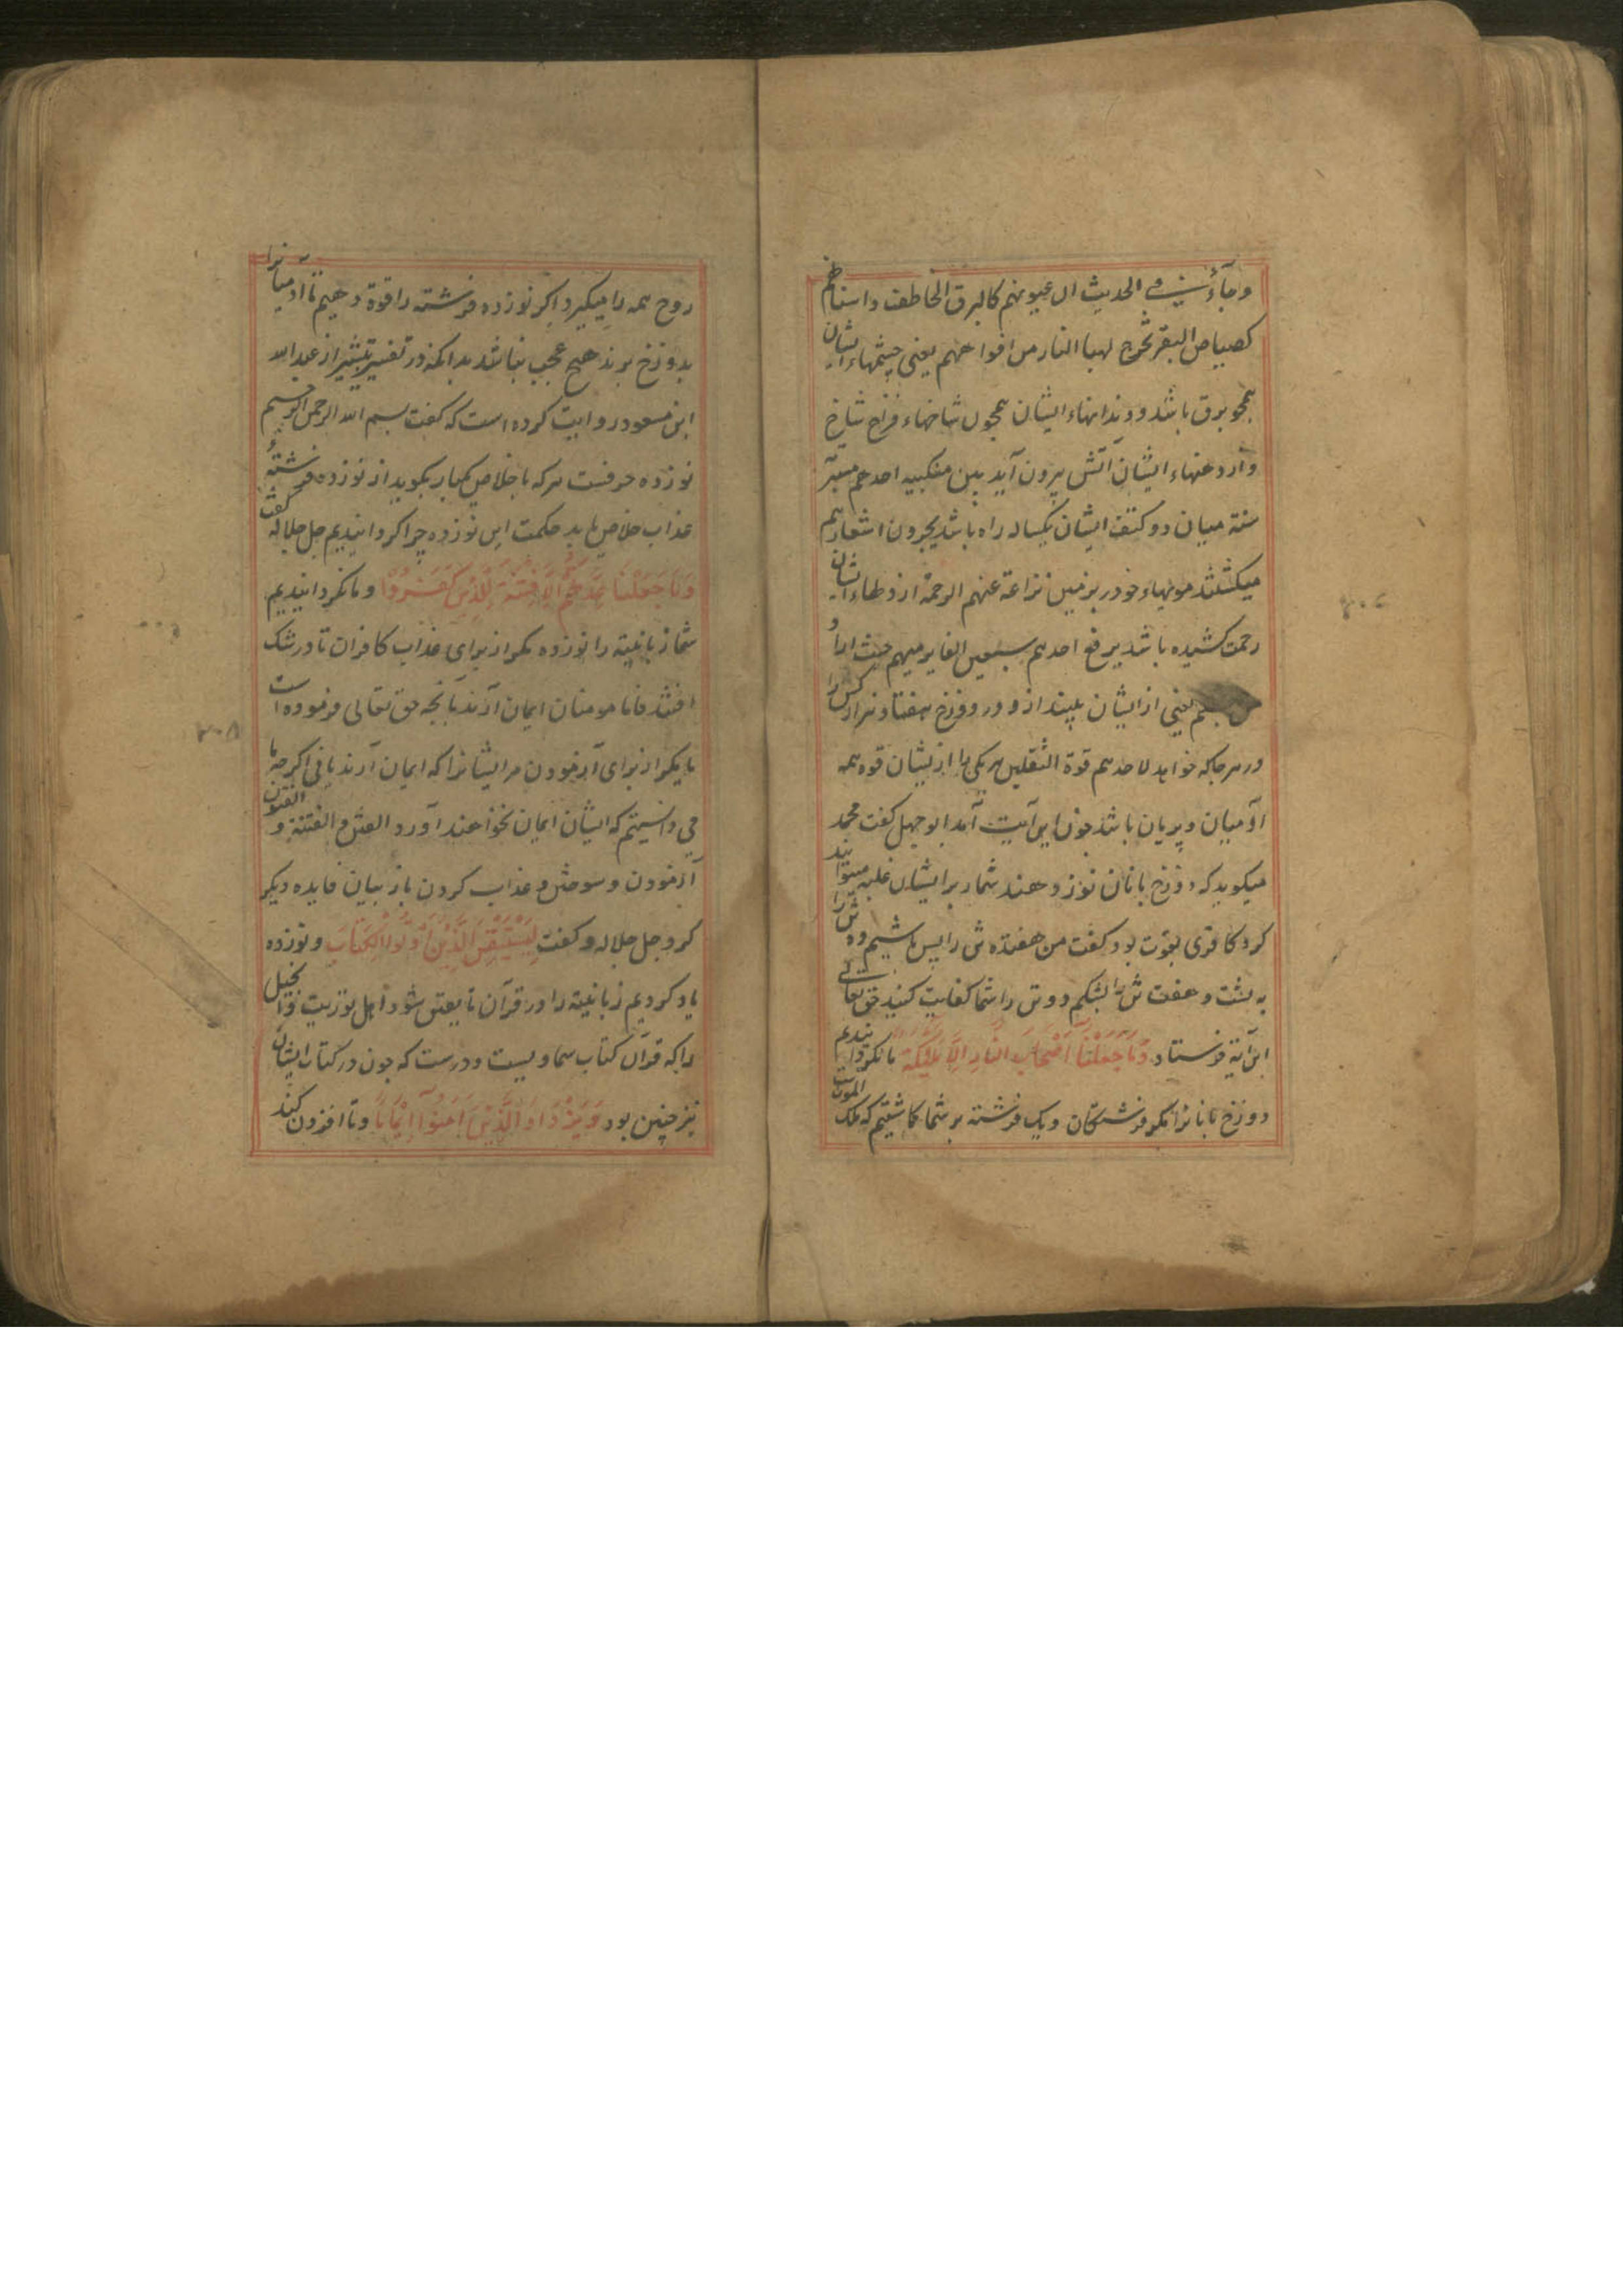 وجاء فی الحدیث ان عیونهم کالبرق الخاطف واسنانهم
کصیاصی البقر تخرج لهب النار من افواههم یعنی چشمهاء ایشان
همچو برق باشد و دندانهاء ایشان همچون شاخهاء فراخ شاخ
و از دهنهاء ایشان آتش بیرون آید بین منکبیه احدهم مسیرة
سنة میان دو کتف ایشان یکساله راه باشد یجرون اشعارهم
میکشند مویهاء خود بر زمین نزاعة عنهم الرحمة از دلهاء ایشان
رحمت کشیده باشد یرفع احدهم سبعین الفا یرمیهم حیث اراد
من جهنم یعنی از ایشان بیندازد در دوزخ هفتاد هزار کس را
در هر جاکه خواهد لاحدهم قوة الثقلین هر یکی را ازیشان قوه همه
آدمیان و پریان باشد چون این آیت آمد ابوجهل کفت محمد
میکوید که دوزخ بانان نوزدهند شمار بر ایشان غلبه میتوانید
کرد کافری بقوت بود کفت من هفده ش را بس باشیم ده ش را
به پشت و هفت ش را بشکم دو تن را شما کفایت کنید حق تعالی
این آیة فرستاد وَمَا جَعَلْنَا اَصْحَابَ النَّارِ اِلَّا مَلٰٓئِکَةً ما نکردانیدیم
دوزخ بانانرا مکر فرشتکان و یک فرشته بر شما کماشتیم که ملک الموت
روح همه را میکیرد اکر نوزده فرشته را قوة دهیم تا آدمیانرا
بدوزخ برند هیچ عجب نباشد بدانکه در تفسیر تیسیر از عبد الله
ابن مسعود روایت کرده است که کفت بسم الله الرحمن الرحیم
نوزده حرفست هر که باخلاص یکبار بکوید از نوزده فرشتهٔ
عذاب خلاص یابد حکمت این نوزده چرا کردانیدیم جل جلاله کفت
وَمَا جَعَلْنَا عِدَّتَهُمْ اِلَّا فِتْنَةً لِلَّذِینَ کَفَرُوا و ما نکردانیدیم
شمار زبانیة را نوزده مکر از برای عذاب کافران تا در شک
افتند فاما مومنان ایمان آرند بآنچه حق تعالی فرموده است
یا مکر از برای آزمودن مر ایشانرا که ایمان آرند یا نی اکرچه ما
می دانستیم که ایشان ایمان نخواهند آورد الفتن و الفتنة و الفتون
آزمودن و سوختن و عذاب کردن باز بیان فایده دیکر
کرد جل جلاله و کفت لِیَسْتَیْقِنَ الَّذِینَ اُوتُوا الْکِتَابَ و نوزده
یاد کردیم زبانیة را در قرآن تا یقین شود اهل توریت و انجیل
را که قرآن کتاب سماویست و درست که چون در کتاب ایشان
نیز چنین بود وَیَزْدَادَ الَّذِینَ اٰمَنُوٓا اِیْمَانًا و تا افزون کند
۲۰۸